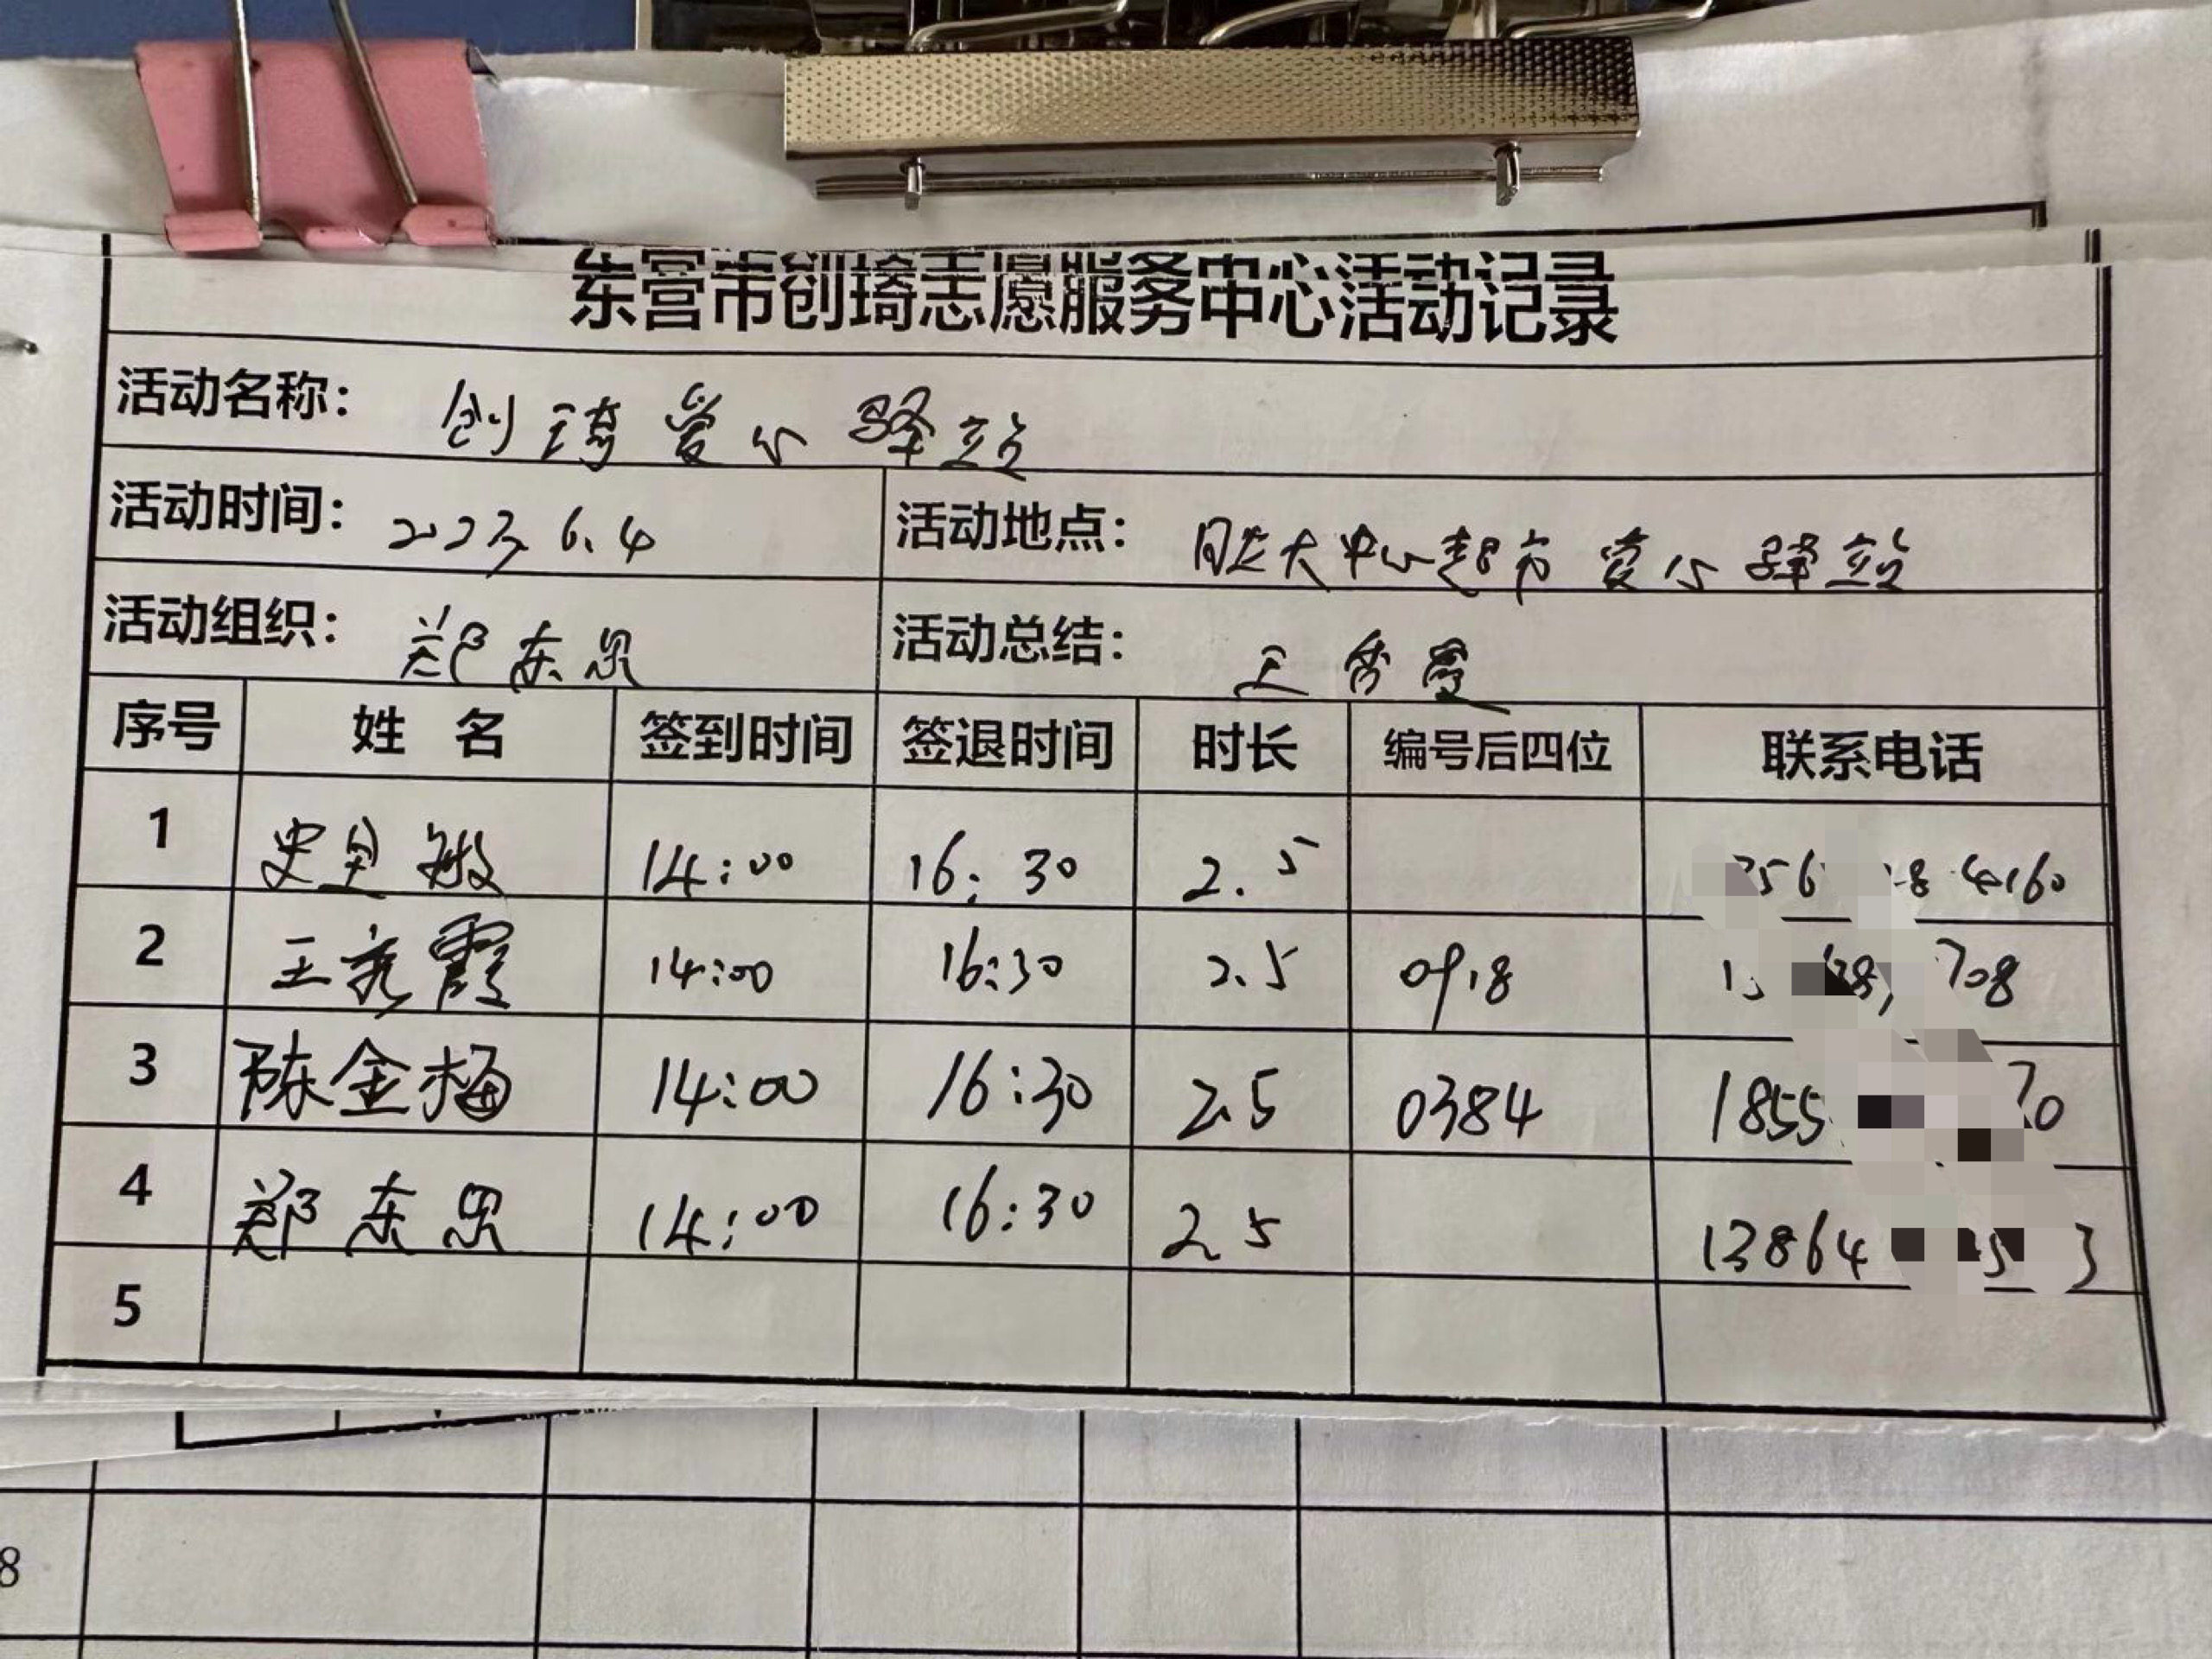 东营市创琦志愿服务中心活动记录
活动名称： 创琦爱心驿站
活动时间： 2023.6.4 活动地点： 胜大中心超市爱心驿站
活动组织： 郑东思 活动总结： 王秀霞
序号 姓名 签到时间 签退时间 时长 编号后四位 联系电话
1 史 敏 14:00 16:30 2.5 4160
2 王 霞 14:00 16:30 2.5 0918 708
3 陈金梅 14:00 16:30 2.5 0384 1855 70
4 郑东思 14:00 16:30 2.5 13864 5 3
5
8